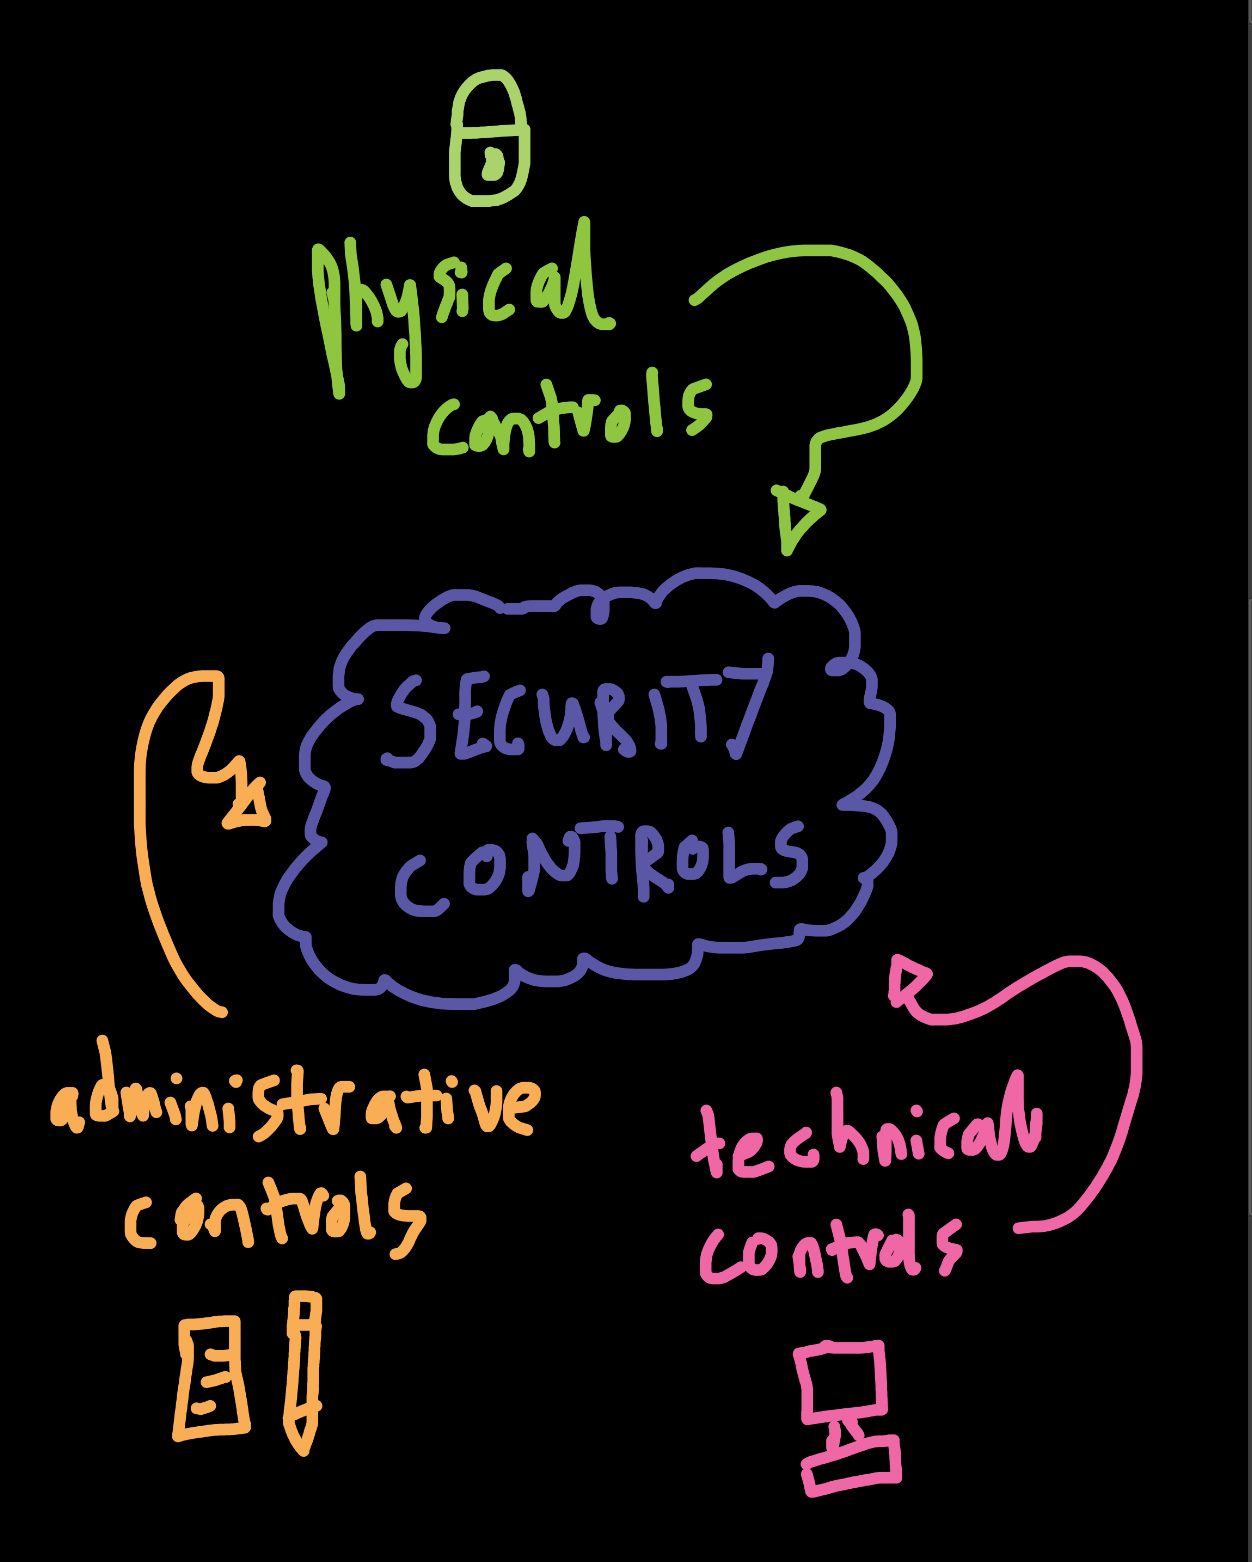 physical
controls
SECURITY
CONTROLS
administrative
controls
technical
controls